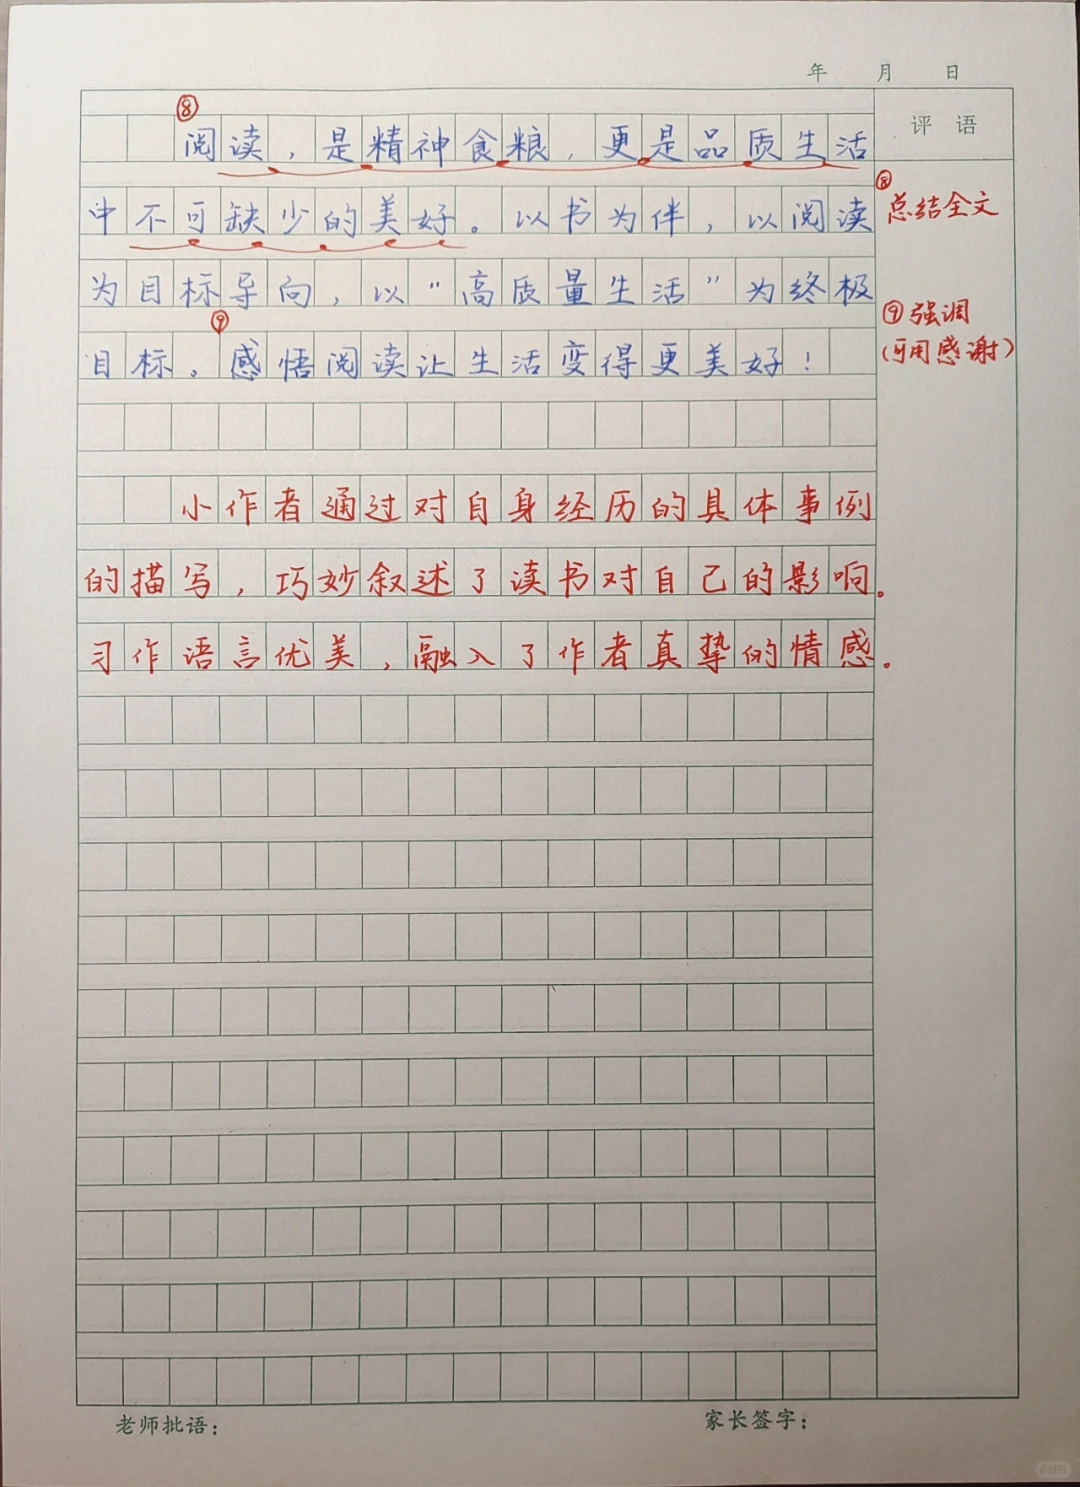 年 月 日
评语
⑧
阅读，是精神食粮，更是品质生活
中不可缺少的美好。以书为伴，以阅读
为目标导向，以“高质量生活”为终极
⑨
目标。感悟阅读让生活变得更美好！
⑧
总结全文
⑨强调
(可用感谢)
小作者通过对自身经历的具体事例
的描写，巧妙叙述了读书对自己的影响。
习作语言优美，融入了作者真挚的情感。
老师批语： 家长签字：